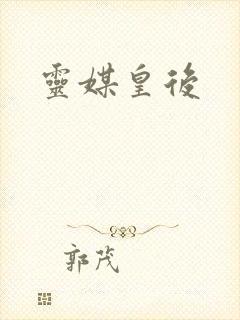 靈媒皇後
郭茂